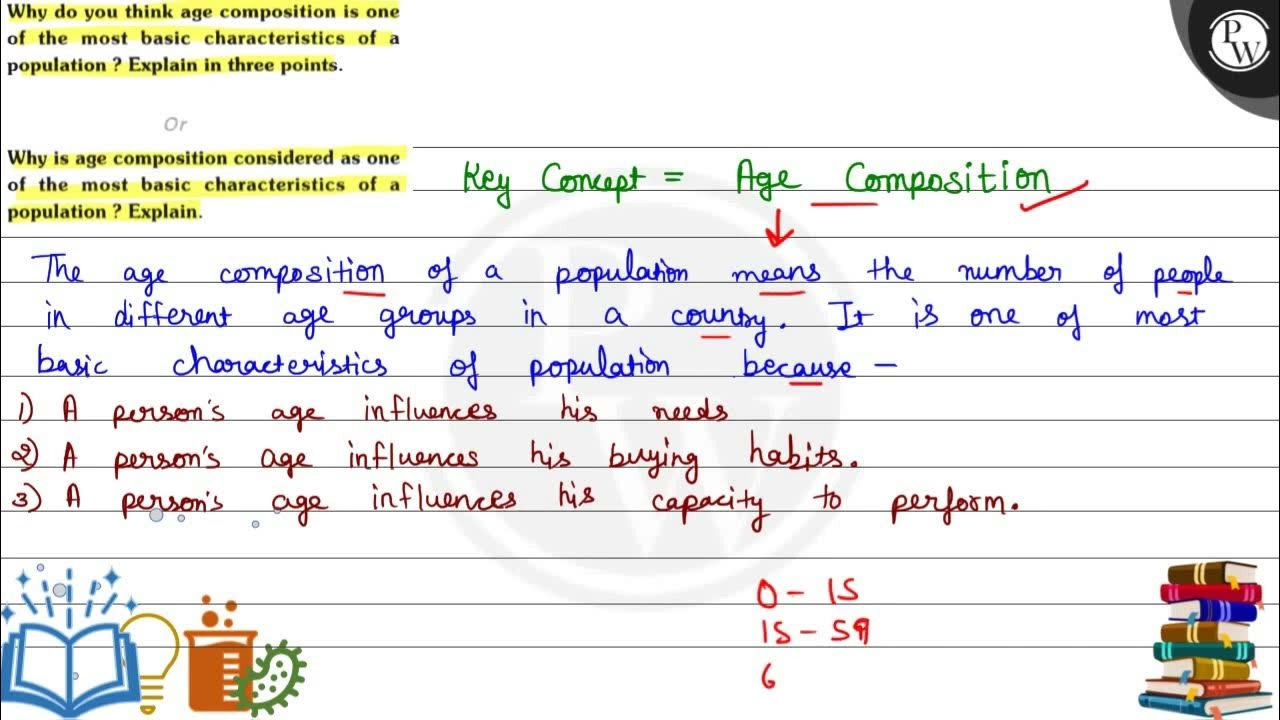 Why do you think age composition is one
of the most basic characteristics of a
population ? Explain in three points.
Or
Why is age composition considered as one
of the most basic characteristics of a
population ? Explain.
Key Concept = Age Composition
The age composition of a population means the number of people
in different age groups in a country. It is one of most
basic characteristics of population because –
1) A person's age influences his needs
2) A person's age influences his buying habits.
3) A person's age influences his capacity to perform.
0 - 15
15 - 59
6
PW